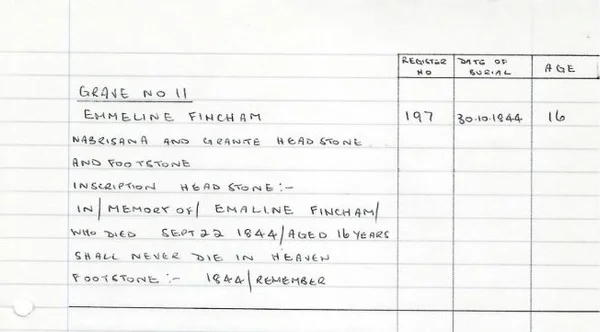 REGISTER NO DATE OF BURIAL AGE
GRAVE NO 11
EMMELINE FINCHAM 197 30.10.1844 16
NABRISANA AND GRANITE HEADSTONE
AND FOOTSTONE
INSCRIPTION HEADSTONE:-
IN/MEMORY OF/ EMALINE FINCHAM/
WHO DIED SEPT 22 1844/AGED 16 YEARS
SHALL NEVER DIE IN HEAVEN
FOOTSTONE:- 1844/REMEMBER